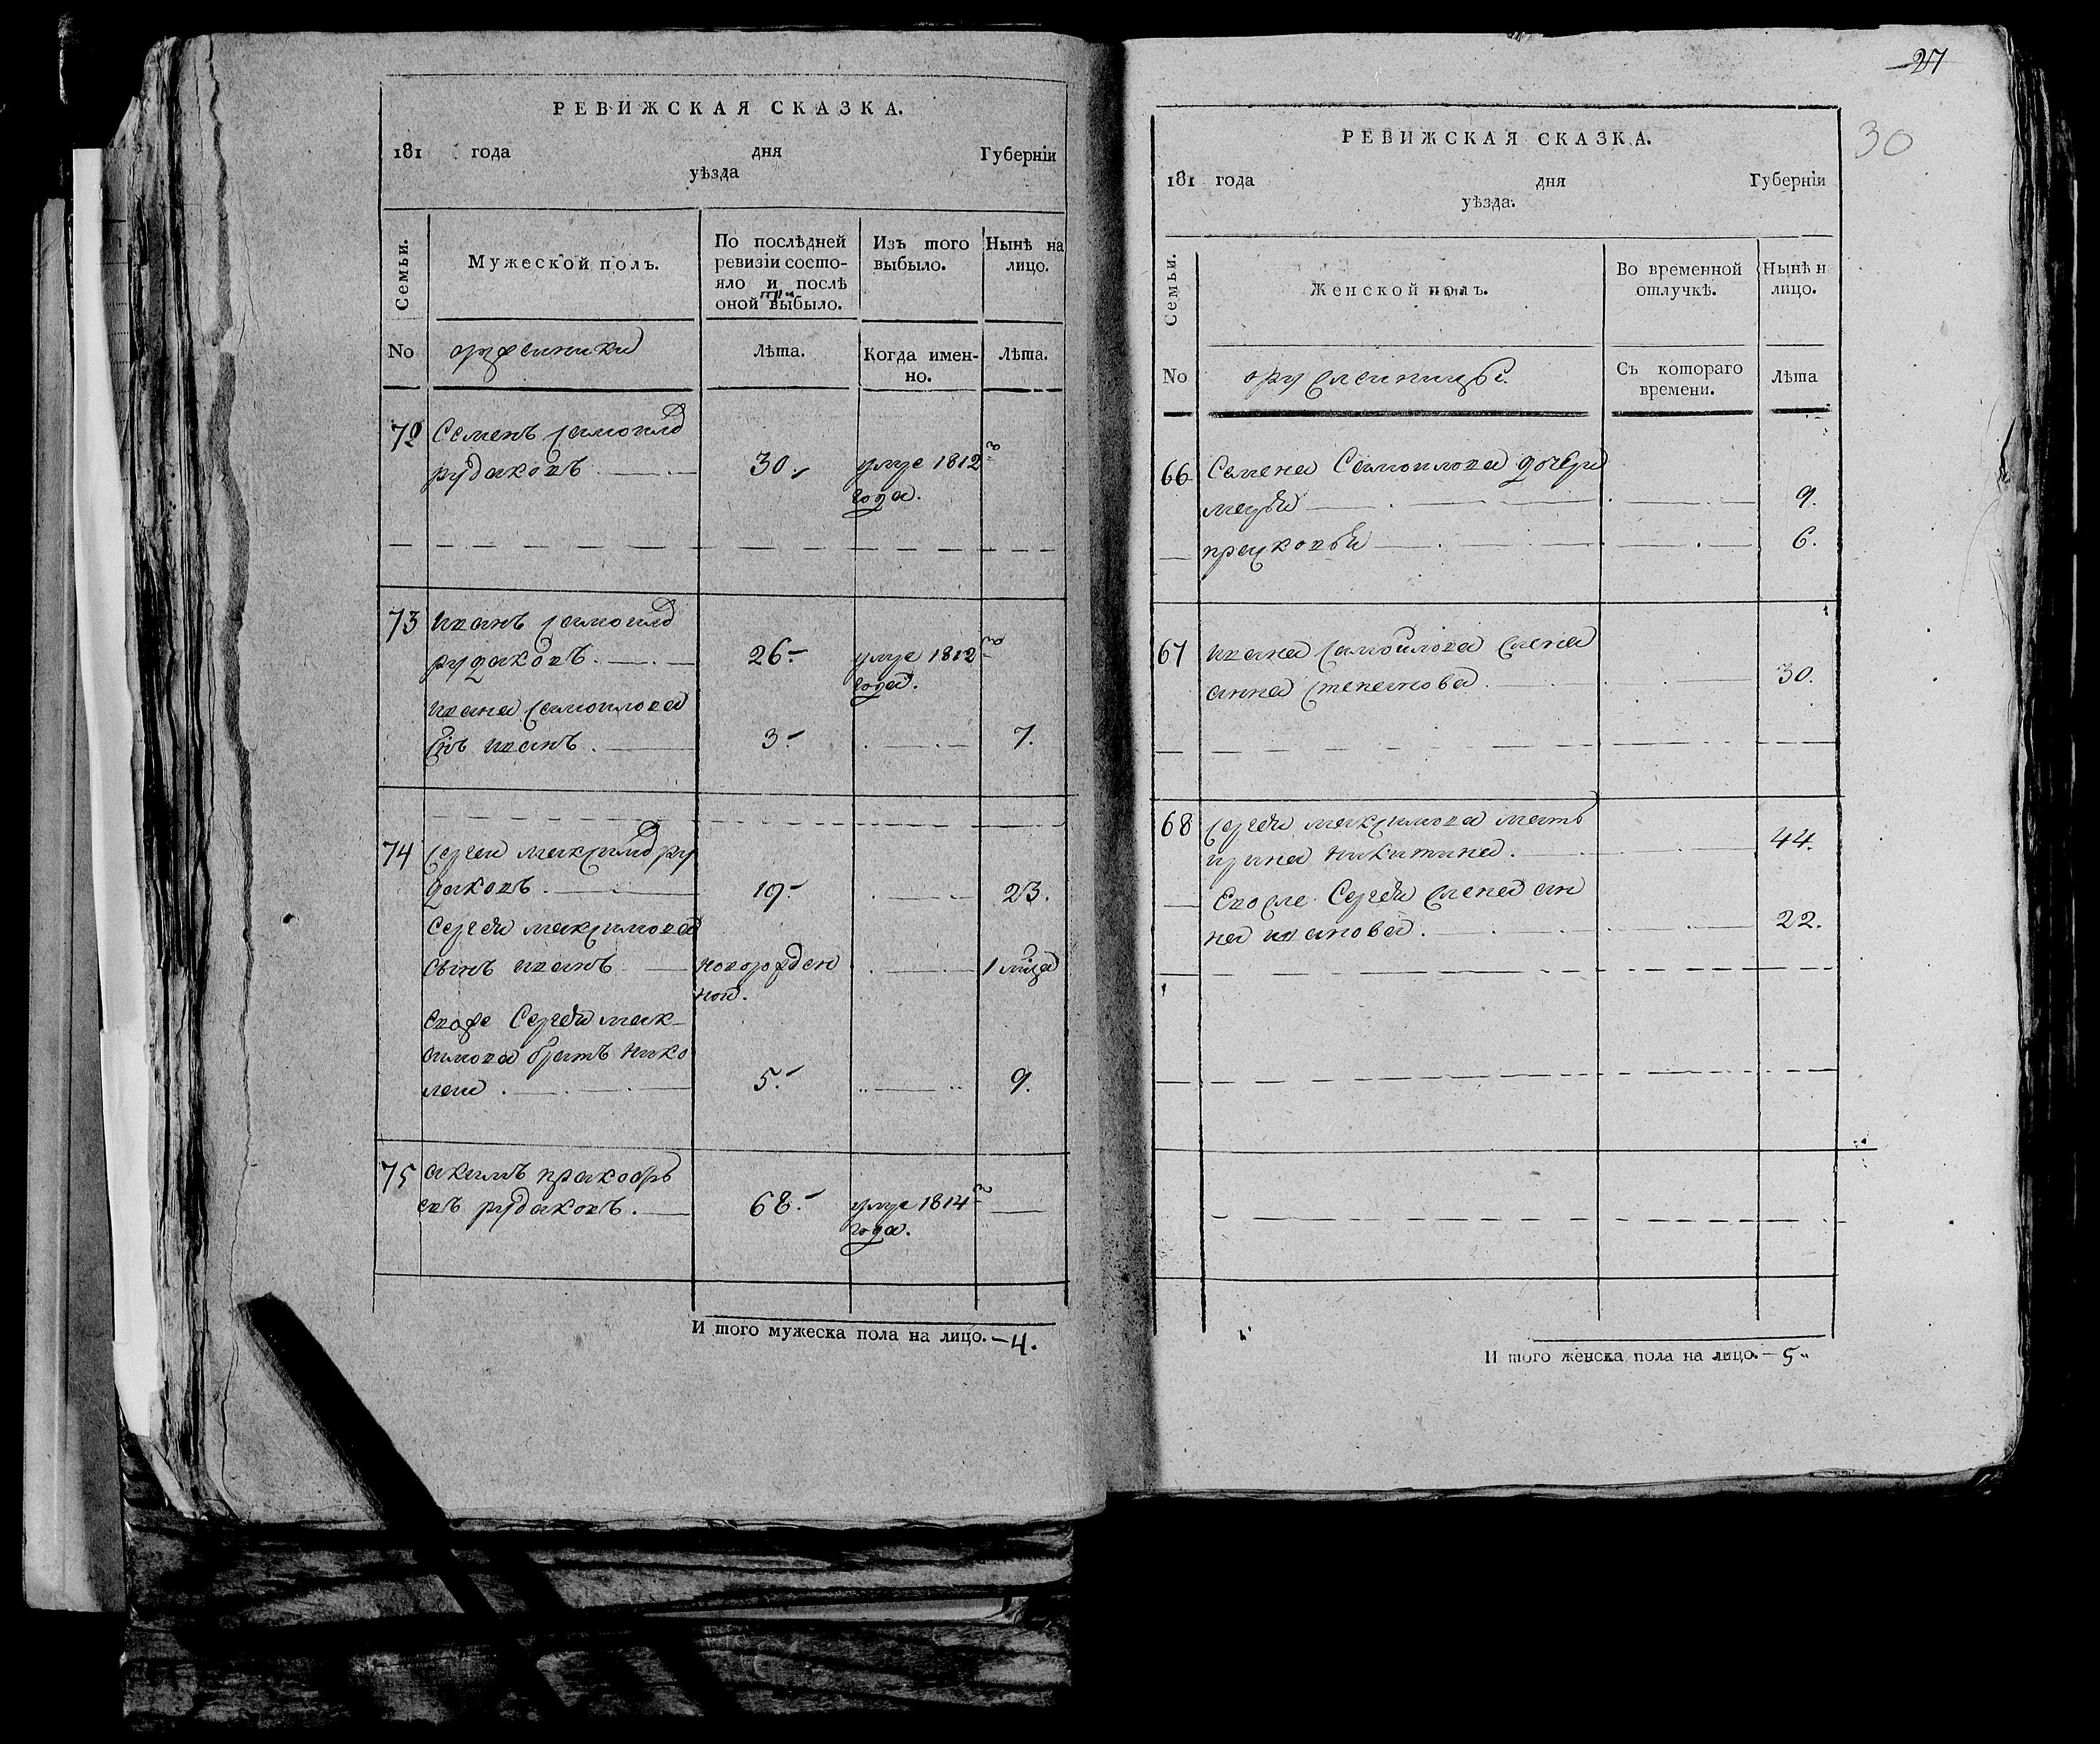 РЕВИЖСКАЯ СКАЗКА.
181 года дня Губерніи
уѣзда
Семьи.
Мужеской полъ.
По послѣдней
ревизіи состо-
яло и послѣ
оной выбыло.
Изъ того
выбыло.
Нынѣ на
лицо.
No
Лѣта.
Когда имен-
но.
Лѣта.
72 Семенъ Самойло
рудаковъ. 30. умре 1812
года.
73 иванъ Самойло
рудаковъ. 26. умре 1812
года.
ивана Самойлова
снъ иванъ. 3. 7.
74 Сергеи максимо ру
даковъ. 19. 23.
Сергѣя максимова
сынъ иванъ новорожден 1 мца
нои.
Евоже Сергѣя мак-
симова братъ нико
лаи. 5. 9.
75 акимъ пракофь
евъ рудаковъ. 68. умре 1814
года.
И того мужеска пола на лицо. — 4.
27
30
РЕВИЖСКАЯ СКАЗКА.
181 года дня Губерніи
уѣзда.
Семьи.
Женской полъ.
Во временной
отлучкѣ.
Нынѣ н
лицо.
No
Съ котораго
времени.
Лѣта
66 Семена Самоилова дочери
9.
прасковья 6.
67 ивана Самойлова жена
анна степанова. 30.
68 Сергѣя максимова мать
ирина никитина. 44.
Евоже Сергѣя жена ан
на иванова. 22.
И того женска пола на лицо. — 5